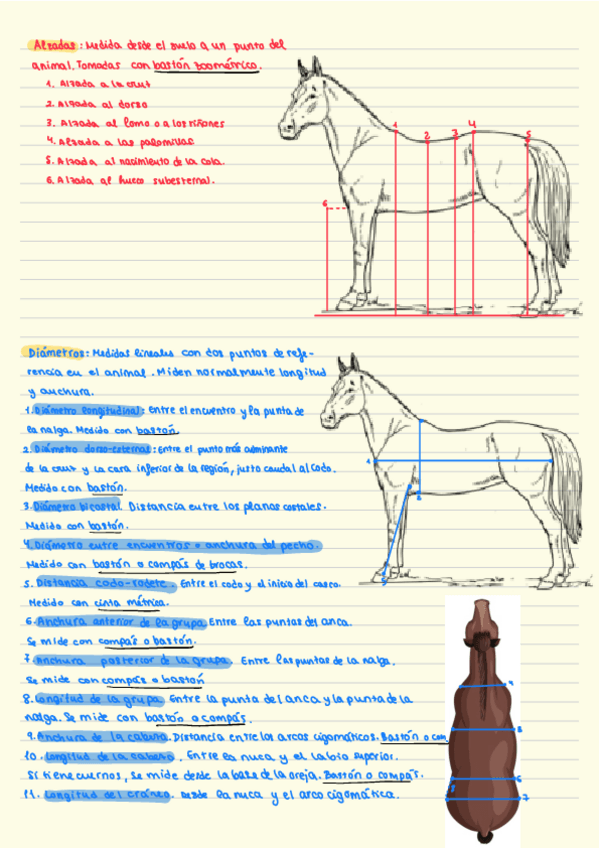 Alzadas: Medida desde el suelo a un punto del
animal. Tomadas con bastón zoométrico.
1. Alzada a la cruz
2. Alzada al dorso
3. Alzada al lomo o a los riñones
4. Alzada a las palomillas
5. Alzada al nacimiento de la cola.
6. Alzada al hueco subesternal.
1
2
3
4
5
6
Diámetros: Medidas lineales con dos puntos de refe-
rencia en el animal. Miden normalmente longitud
y anchura.
1. Diámetro longitudinal: Entre el encuentro y la punta de
la nalga. Medido con bastón
2. Diámetro dorso-esternal: Entre el punto más culminante
de la cruz y la cara inferior de la región, justo caudal al codo.
Medido con bastón.
3. Diámetro bicostal. Distancia entre los planos costales.
Medido con bastón.
4. Diámetro entre encuentros o anchura del pecho.
Medido con bastón o compás de brocas.
5. Distancia codo-rodete. Entre el codo y el inicio del casco.
Medido con cinta métrica.
6. Anchura anterior de la grupa. Entre las puntas del anca.
Se mide con compás o bastón.
7. Anchura posterior de la grupa. Entre las puntas de la nalga.
Se mide con compás o bastón
8. Longitud de la grupa. Entre la punta del anca y la punta de la
nalga. Se mide con bastón o compás.
9. Anchura de la cabeza. Distancia entre los arcos cigomáticos. Bastón o com
10. Longitud de la cabeza. Entre la nuca y el labio superior.
Si tiene cuernos, se mide desde la base de la oreja. Bastón o compás.
11. Longitud del cráneo. Desde la nuca y el arco cigomático.